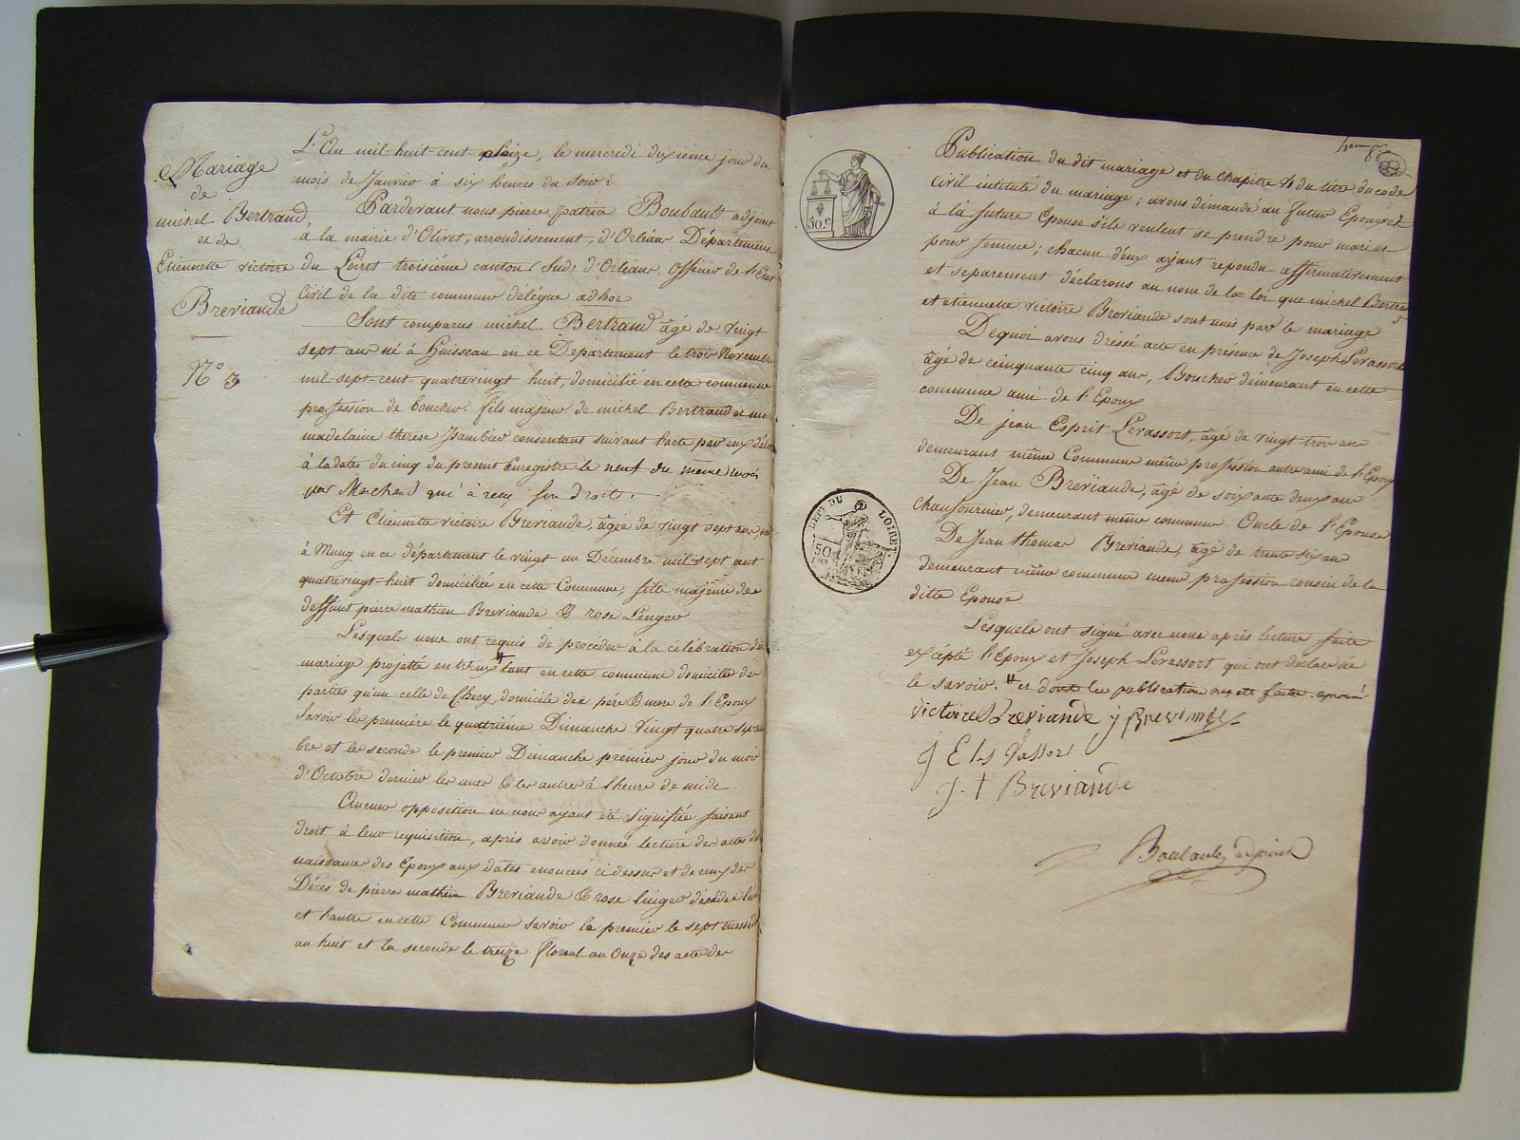 Mariage
de
michel Bertrand
et de
Etiennette victoire
Breviande
N° 3
L'An mil-huit-cent seize, le mercredi dixieme jour du
mois de Janvier à six heures du soir
Pardevant nous pierre patrice Boubault adjoint
à la mairie d'Olivet, arrondissement, d'Orléans Département
du Loiret troisième canton (sud) d'Orleans, officier de l'Etat
Civil de la dite commune délégué adhoc
Sont comparus michel Bertrand âgé de vingt
sept ans né à huisseau en ce Département le trois Novembre
mil-sept-cent quatrevingt huit, domicilié en cette commune
profession de boucher fils majeur de michel Bertrand et
madelaine therese Jambier consentans suivant l'acte par eux
à la date du cinq du present Enregistré le neuf du meme mois
par Marchand qui à reçu son droit.
Et Etiennette victoire Breviande, âgée de vingt sept ans née
à Mung en ce département le vingt un Décembre mil-sept cent
quatrevingt-huit domiciliée en cette Commune, fille majeure de
deffunt pierre mathieu Breviande & rose Linger
Lesquels nous ont requis de procéder à la célébration du
mariage projetté entr'eux # tant en cette commune domicile des
parties qu'en celle de Checy domicile des pére & mere de l'Epoux
Savoir la premiére le quatriéme Dimanche vingt quatre Septem
bre et la seconde le premier Dimanche premier jour du mois
d'Octobre dernier les unes & les autres à l'heure de midi
Aucune opposition ne nous ayant été signifiée faisant
droit à leur requisition, après avoir donné lecture des actes de
naissance des Epoux aux dates enoncées ci dessus et de ceux de
Décès de pierre mathieu Breviande & rose Linger décédés l'un
et l'autre en cette Commune savoir le premier le sept messidor
an huit et la seconde le treize floreal an Onze des actes de
Publication du dit mariage et du chapitre VI du titre du code
civil intitulé du mariage; avons demandé au futur Epoux et
à la future Epouse s'ils veulent se prendre pour mari et
pour femme; chacun d'eux ayant repondu affirmativement
et separement déclarons au nom de la loi que michel Bertrand
et etiennette victoire Breviande sont unis par le mariage
Dequoi avons dressé acte en présence de Joseph Levassort
âgé de cinquante cinq ans, Boucher demeurant en cette
commune ami de l'Epoux
De jean Esprit Levassort, âgé de vingt trois ans
demeurant même Commune même profession autre ami de l'Epoux
De Jean Breviande, âgé de soixante deux ans
Chaufournier, demeurant même commune Oncle de l'Epouse
De Jean thomas Breviande, âgé de trente six ans
demeurant même commune meme profession cousin de la
ditte Epouse
Lesquels ont signé avec nous après lecture faite
excépté l'Epoux et Joseph Levassort qui ont déclaré ne
le savoir. # et dont les publications ont été faites. approuvé
victoire Breviande j Breviande
J E Levassor
J. t Breviande
Boubault, adjoint
50 C
DEPT DU LOIRET.
50